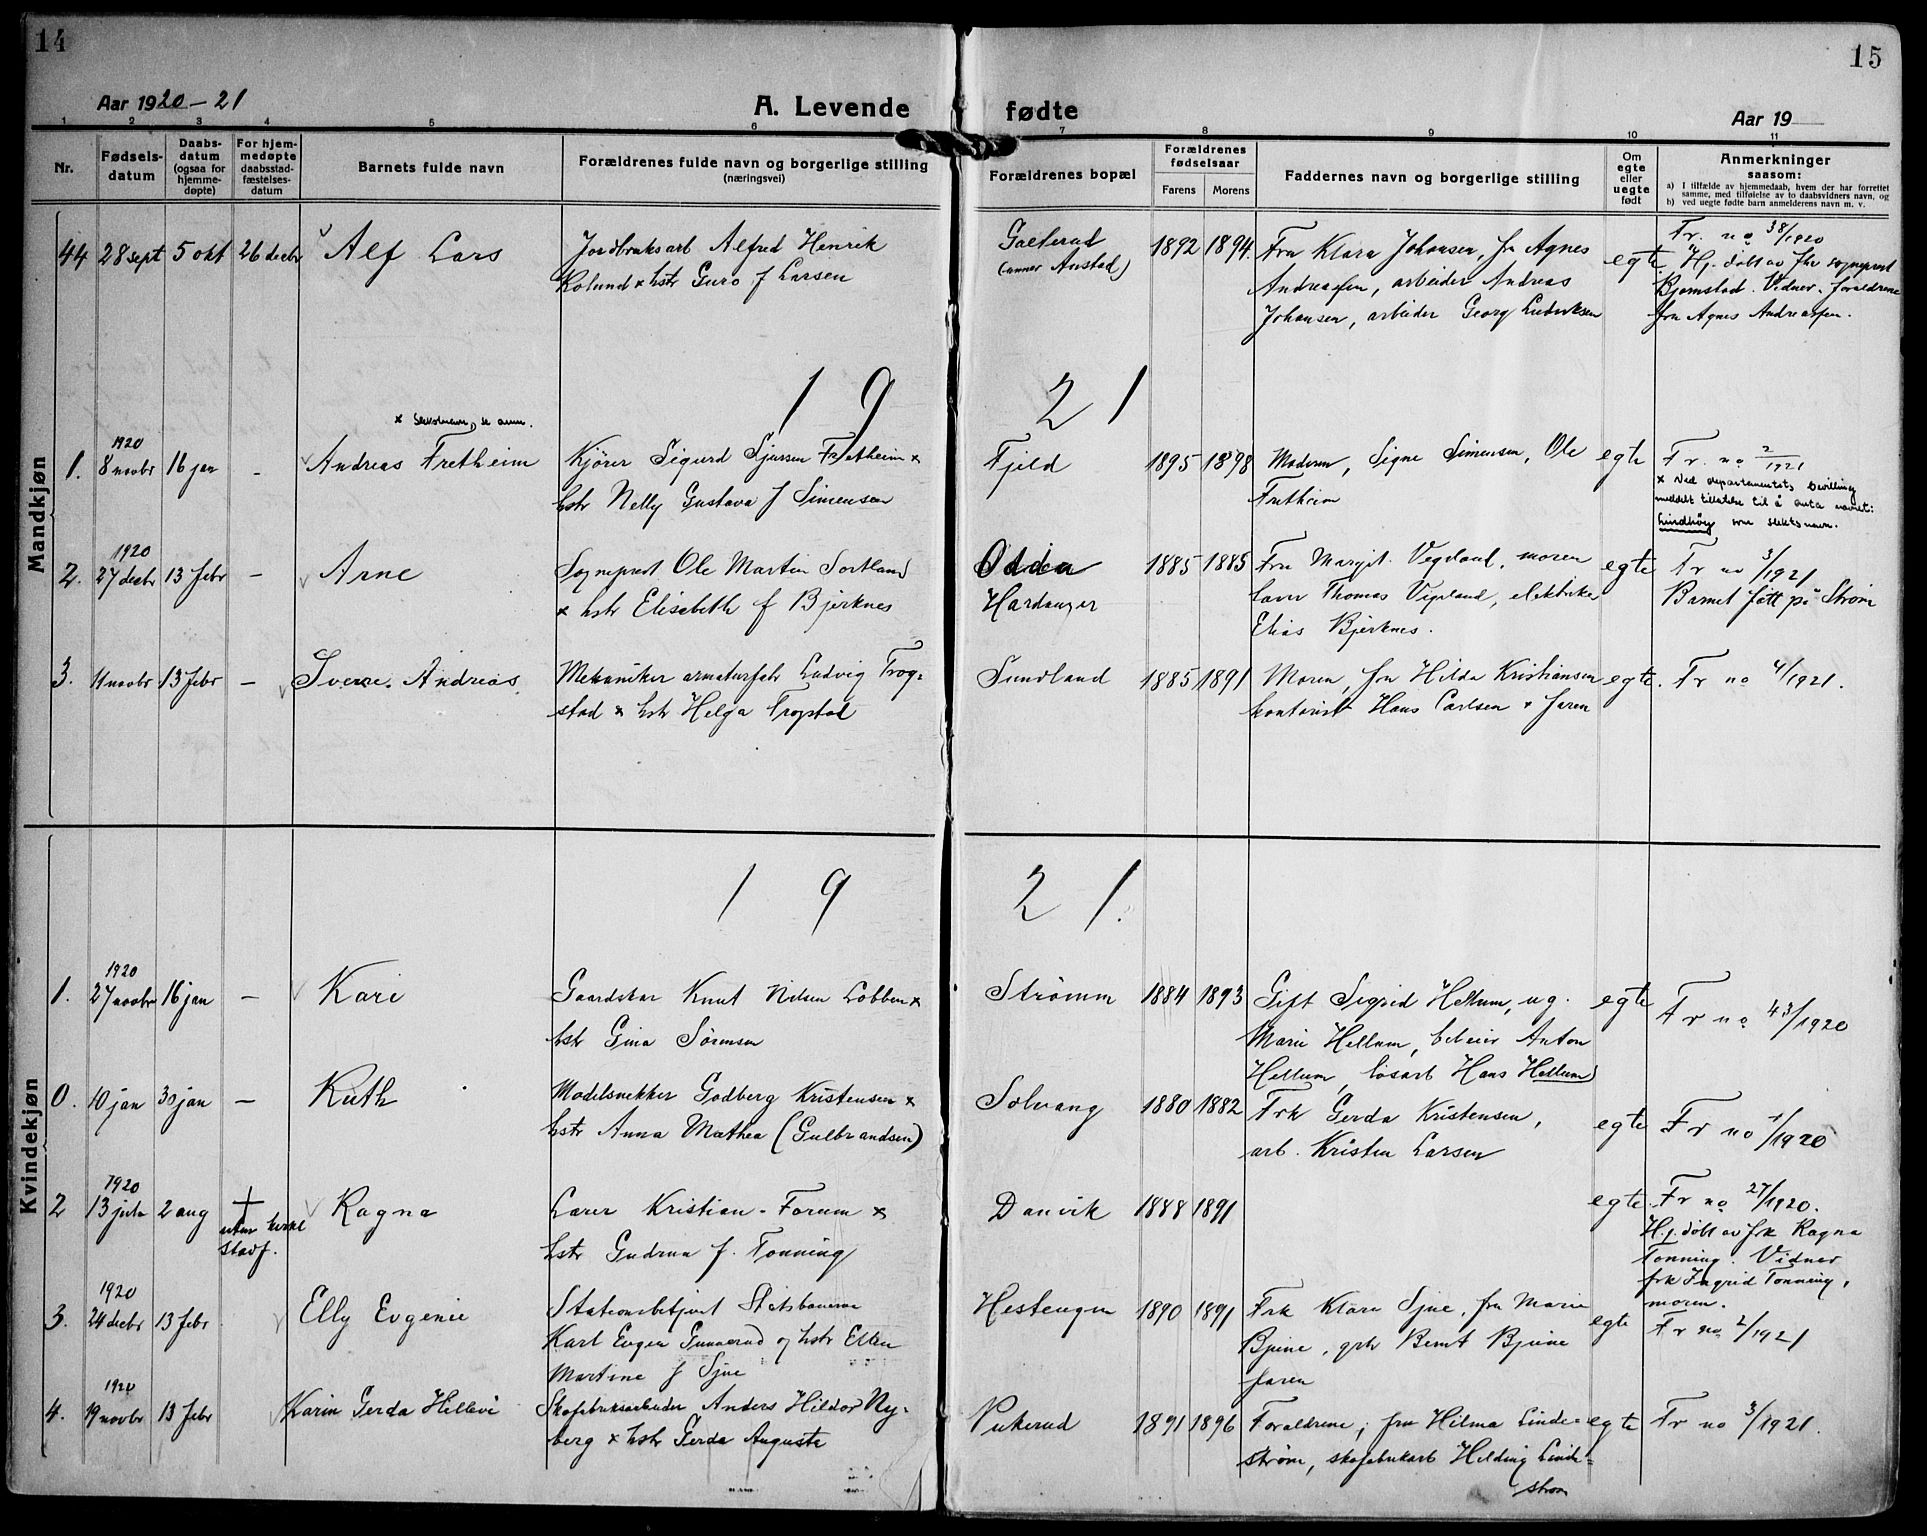 14
15
Aar 1920-21
A. Levende
fødte
Aar 19
1 2 3 4 5 6 7 8 9 10 11
Nr.
Fødsels-
datum
Daabs-
datum
(ogsaa for
hjemme-
døpte)
For hjem-
medøpte
daabsstad-
fæstelses-
datum
Barnets fulde navn
Forældrenes fulde navn og borgerlige stilling
(næringsvei)
Forældrenes bopæl
Forældrenes
fødselsaar
Farens Morens
Faddernes navn og borgerlige stilling
Om
egte
eller
uegte
født
Anmerkninger
saasom:
a) I tilfælde av hjemmedaab, hvem der har forrettet
samme, med tilføielse av to daabsvidners navn, og
b) ved uegte fødte barn anmelderens navn m. v.
Mandkjøn
44 28 sept 5 okt 26 decbr Alf Lars
Jordbruksarb Alfred Henrik
Rolund x hstr Guro f Larsen
1892 1894
Fru Klara Johansen, fr Agnes
Andreassen, arbeider Andreas
Johansen, arbeider Georg Ludviksen
egte
Fr. no 38/1920
Hj. døbt av sogneprest
Bjørnstad. Vidner. forældrene
fru Agnes Andreassen.
19 21
x Slektsnavn, se anm.
1. 1920
8 novbr 16 jan - Andreas Fretheim
Kjører Sigurd Sjursen Fretheim x
hstr Nelly Gustava f Simensen
Fjeld
1895 1898
Moderen, Signe Simensen, Ole
Fretheim
egte
Fr. no 2/1921
x Ved departementets bevilling
meddelt tillatelse til å anta navnet:
Lindhøy som slektsnavn.
2. 1920
27 decbr 13 febr - Arne
Sogneprest Ole Martin Sortland
x hstr Elisabeth f Bjerknes
Odda
Hardanger
1885 1885
Fru Margit Vegeland, moren
Thomas Vigeland, elektriker
Elias Bjerknes.
egte
Fr no 3/1921
Barnet født på Strøm
3. 11 novbr 13 febr - Sverre Andreas
Mekaniker armaturfabr Ludvig Trog-
stad x hstr Helga Trogstad
Sundland
1885 1891
Moren, fru Hilda Kristiansen
kontorist Hans Carlsen x faren
egte.
Fr no 4/1921.
Kvindekjøn
19 21.
1. 1920
27 novbr 16 jan - Kari
Gaardskar Knut Nilsen Lobben x
hstr Gina Sørensen
Strømm
1884 1893
Gift Sigrid Hellum, ug.
Marie Hellum, Anton
Hellum, løsarb Hans Hellum
egte
Fr no 43/1920
0. 10 jan 30 jan - Ruth
Modelsnekker Godberg Kristensen x
hstr Anna Mathea (Gulbrandsen)
Solvang
1880 1882
Frk Gerda Kristensen,
arb. Kristen Larsen
egte
Fr no 1/1920
2 1920
13 juli 2 aug
uten kirke
stadf.
Ragna
Lærer Kristian Forum x
hstr Gudrun f. Tonning
Danvik
1888 1891
egte.
Fr no 27/1920.
Hj. døbt av frk Ragna
Tonning. Vidner
frk Ingrid Tonning,
moren.
3. 1920
24 decbr 13 febr Elly Evgenie
Stationsbetjent Statsbanerne
Karl Evgen Gunnerud og hstr Ellen
Martine f Sjue
Hestengen
1890 1891
Frk Klara Sjue, fru Marie
Bjune, gbr Bernt Bjune
faren
egte
Fr no 2/1921
4. 1920
19 novbr 13 febr Karin Gerda Hillevi
Skofabrikarbeider Anders Hildor Ny-
berg x hstr Gerda Augusta
Pukerud
1891 1896
Forældrene, fru Hilma Linde-
strøm, skofabrikarb Helding Linde-
strøm
egte
Fr no 3/1921.